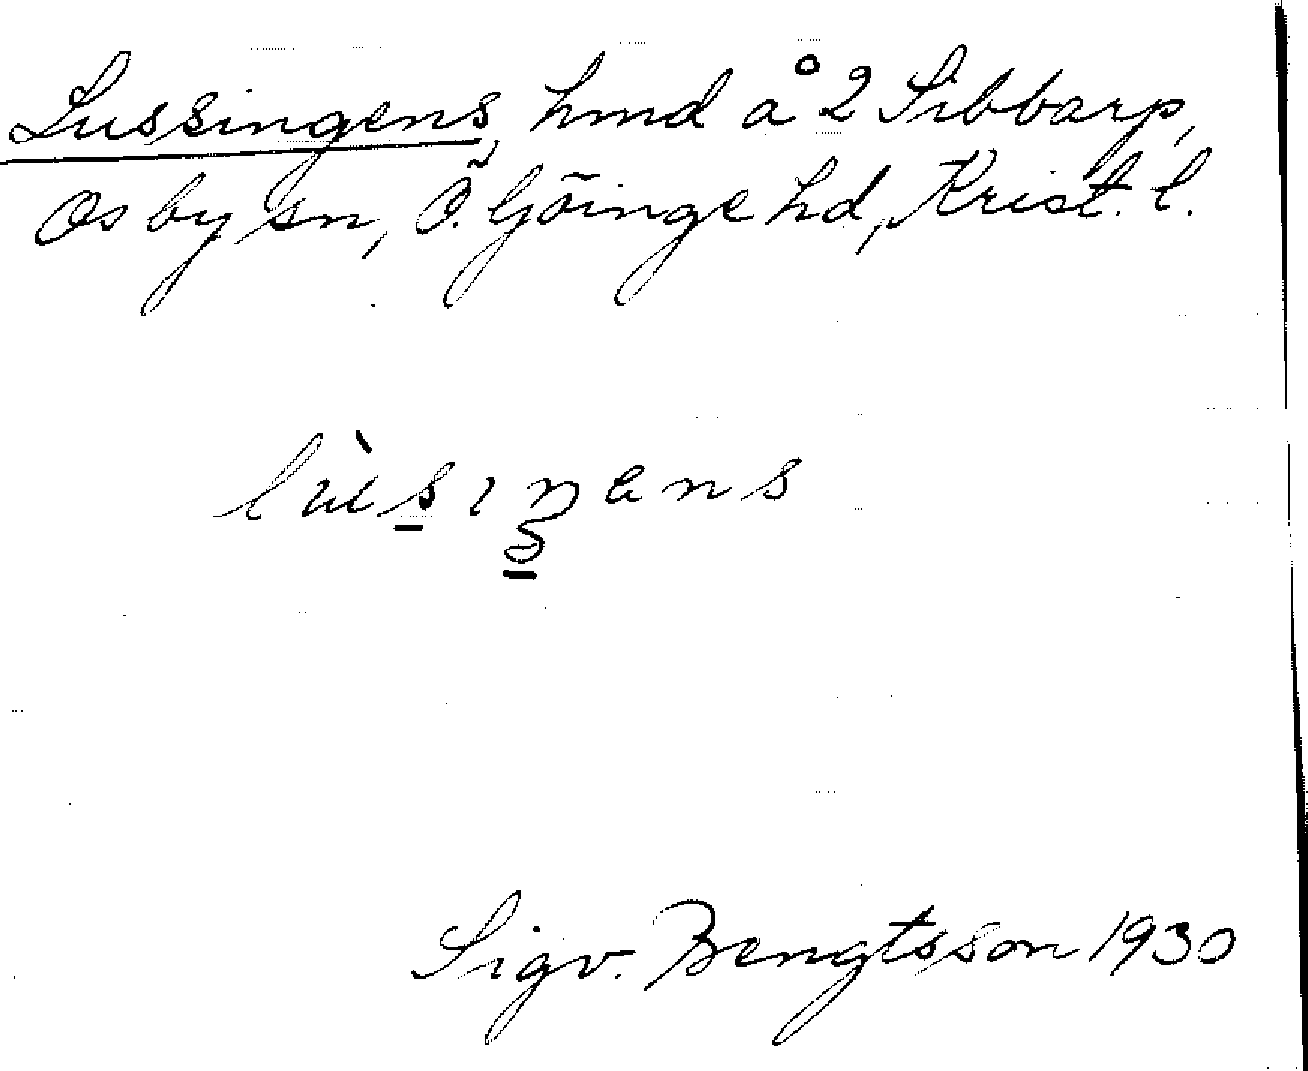 Lussingens, hmd å 2 Sibbarp,
Osby sn, Ö. Göinge hd, Krist. l.
Sigv. Bengtsson 1930